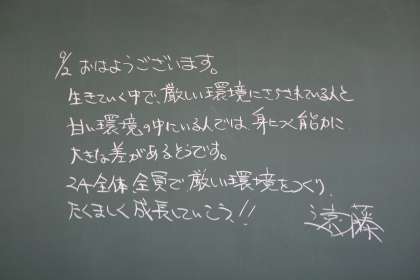 9/2 おはようございます。
生きていく中で、厳しい環境にさらされている人と
甘い環境の中にいる人では、身につく能力に
大きな差があるそうです。
2A全体 全員で厳しい環境をつくり、
たくましく成長していこう!!
遠藤